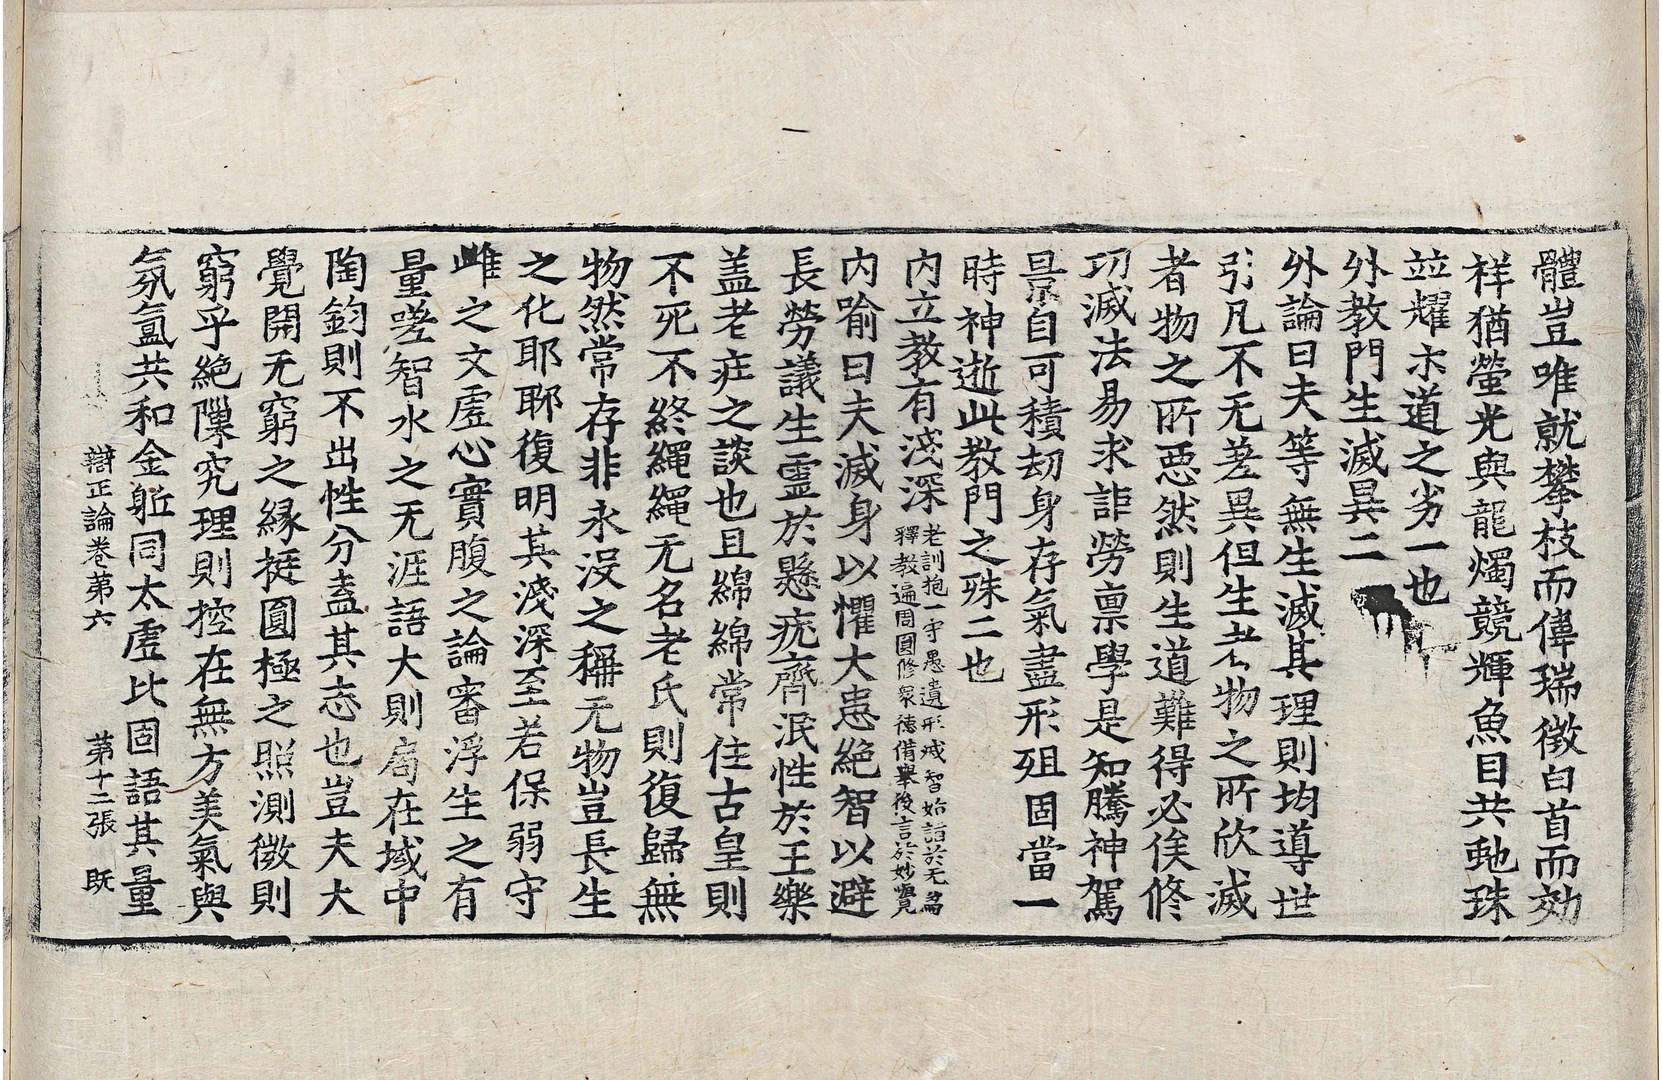 體豈唯就攀枝而偉瑞徵白首而効
祥猶螢光與龍燭競輝魚目共虵珠
竝耀尒道之劣一也
外教門生滅異二
外論曰夫等無生滅其理則均導世
引凡不无差異但生者物之所欣滅
者物之所惡然則生道難得必俟修
功滅法易求詎勞稟學是知騰神駕
景自可積劫身存氣盡形殂固當一
時神逝此教門之殊二也
內立教有淺深老訓抱一守愚遺形滅智始詣於无爲
釋教遍周圓修衆德備舉後言於妙覺
內喻曰夫滅身以懼大患絕智以避
長勞議生靈於懸疣齊泯性於王樂
盖老莊之談也且綿綿常住古皇則
不死不終繩繩无名老氏則復歸無
物然常存非永沒之稱无物豈長生
之化耶耶復明其淺深至若保弱守
雌之文虛心實腹之論審浮生之有
量嗟智水之无涯語大則局在域中
陶鈞則不出性分盍其志也豈夫大
覺開无窮之緣挺圓極之照測微則
窮乎絕隟究理則控在無方美氣與
氛氳共和金軀同太虛比固語其量
辯正論卷第六 第十二張 旣